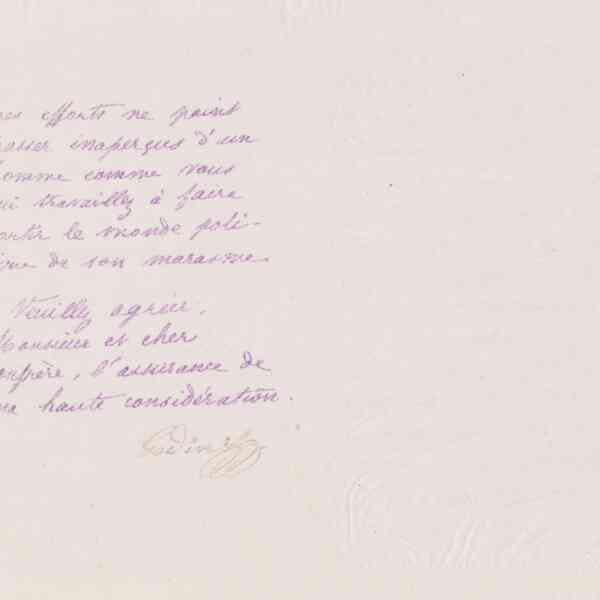 mes efforts ne point
passer inaperçus d'un
homme comme vous
qui travaillez à faire
sortir le monde poli-
tique de son marasme.
Veuillez agréer,
Monsieur et cher
confrère, l'assurance de
ma haute considération.